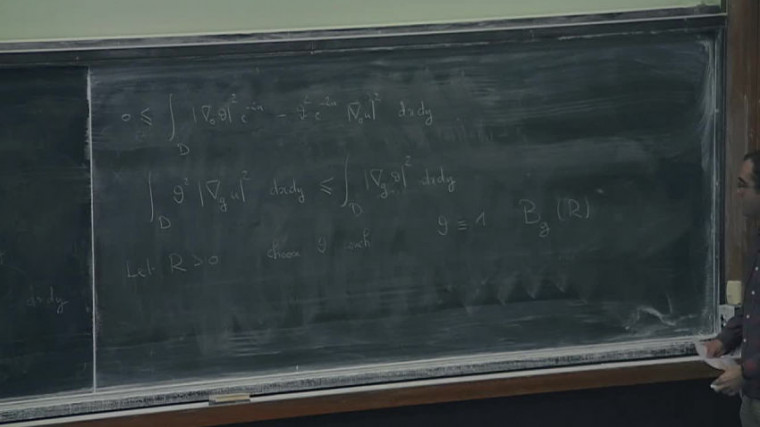 0 ≤ ∫_D |∇₀φ|² e^{-2u} - φ² e^{-2u} |∇₀u|² dxdy
∫_D φ² |∇_g u|² dxdy ≤ ∫_D |∇_g φ|² dxdy
Let R > 0 choose φ such φ ≡ 1 B_g(R)
dxdy